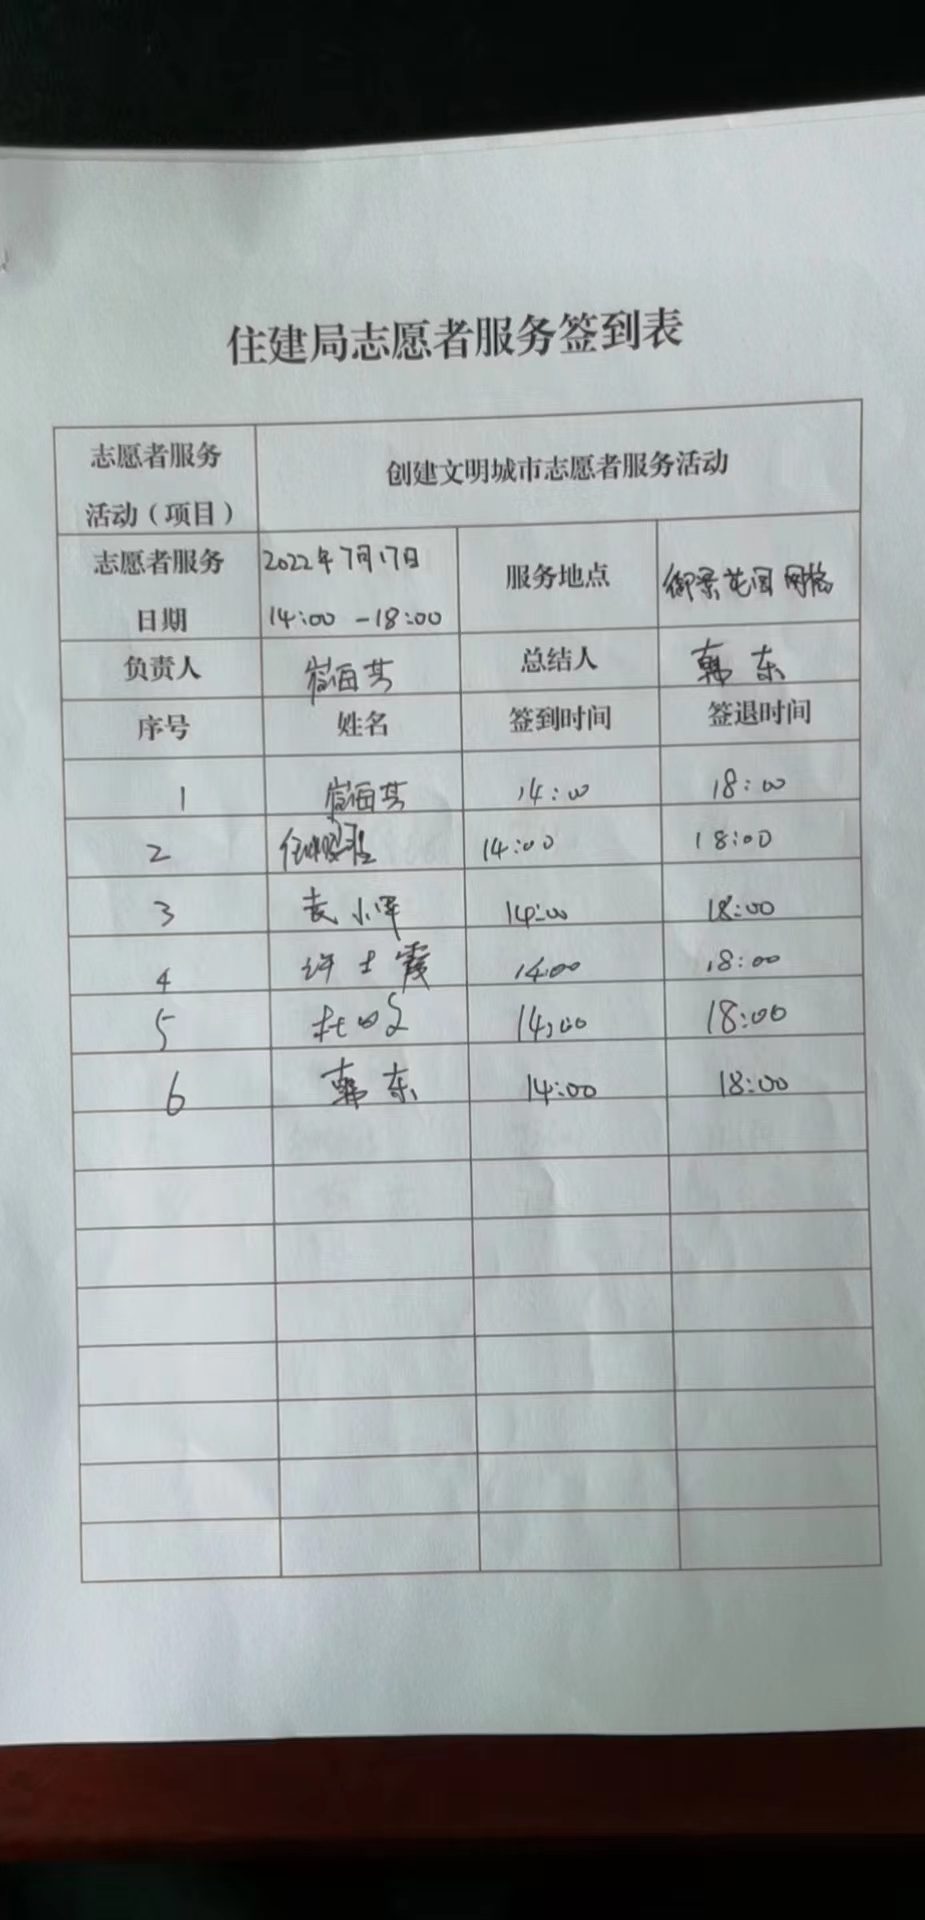 住建局志愿者服务签到表
志愿者服务
活动（项目）
创建文明城市志愿者服务活动
志愿者服务
日期
2022年7月17日
14:00 -18:00
服务地点
御景花园网格
负责人
总结人
韩东
序号 姓名 签到时间 签退时间
1 14:00 18:00
2 14:00 18:00
3 袁小军 14:00 18:00
4 许士霞 14:00 18:00
5 14:00 18:00
6 韩东 14:00 18:00